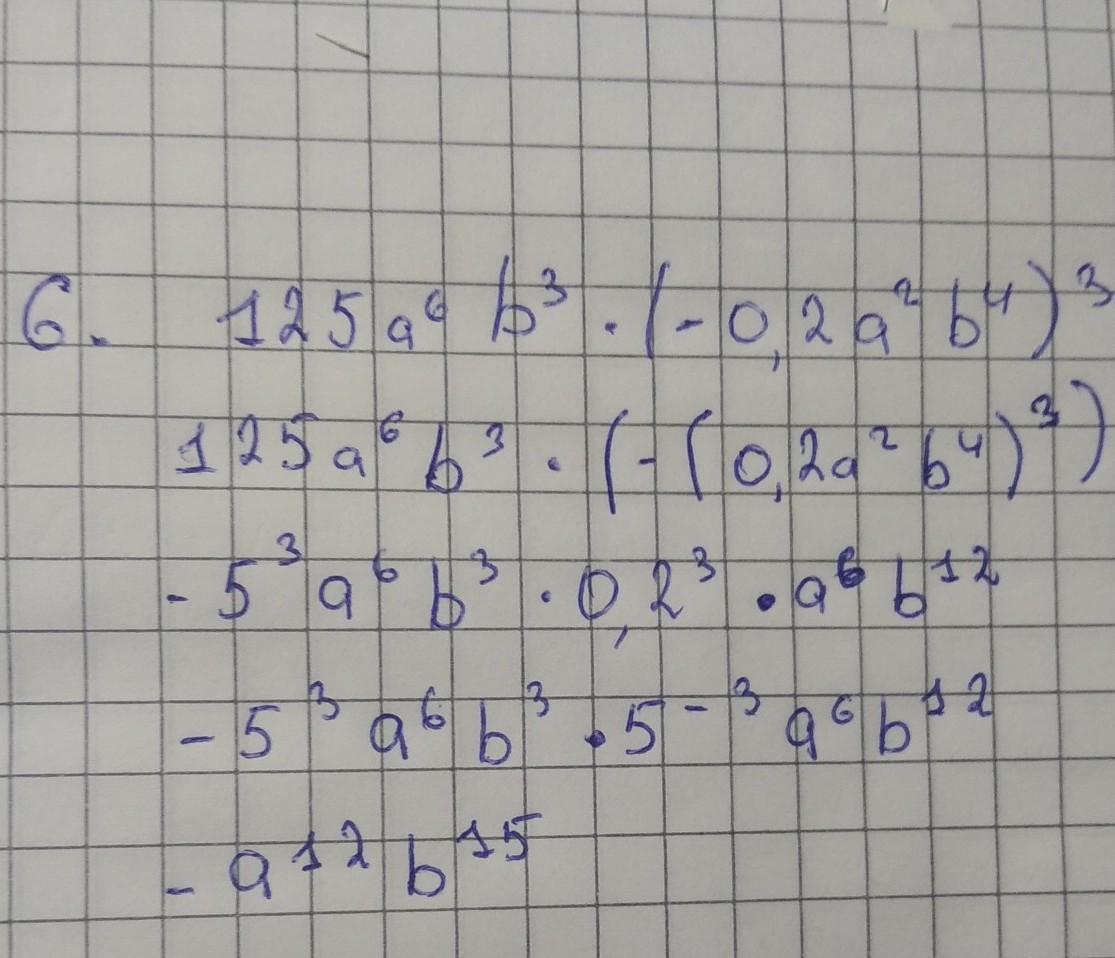 6. 125a⁶b³ · (-0,2a²b⁴)³
125a⁶b³ · (-(0,2a²b⁴)³)
-5³a⁶b³ · 0,2³ · a⁶b¹²
-5³a⁶b³ · 5⁻³a⁶b¹²
-a¹²b¹⁵